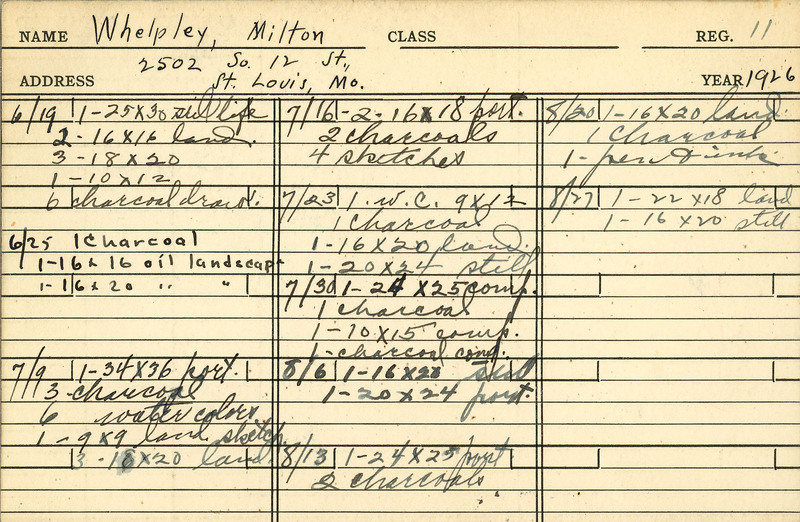 NAME Whelpley, Milton CLASS REG. 11
2502 So. 12 St.,
ADDRESS St. Louis, Mo. YEAR 1926
6/19 1-25X30 still life
2-16X16 land.
3-18X20
1-10X12
6 charcoal draw.
6/25 1 Charcoal
1-16x16 oil landscape
1-16x20 " "
7/9 1-34X36 port.
3-charcoal
6 water colors
1-9x9 land sketch
3-18X20 land.
7/16-2-16x18 port.
2 charcoals
4 sketches
7/23 1 w.c. 9X12
1 charcoal
1-16X20 land.
1-20X24 still
7/30 1-24 X25 comp.
1 charcoal
1-10X15 comp.
1-charcoal comp.
8/6 1-16X20 still
1-20X24 port.
8/13 1-24X25 port
2 charcoals
8/20 1-16X20 land.
1 charcoal
1-pen & ink
8/27 1-22X18 land
1-16X20 still